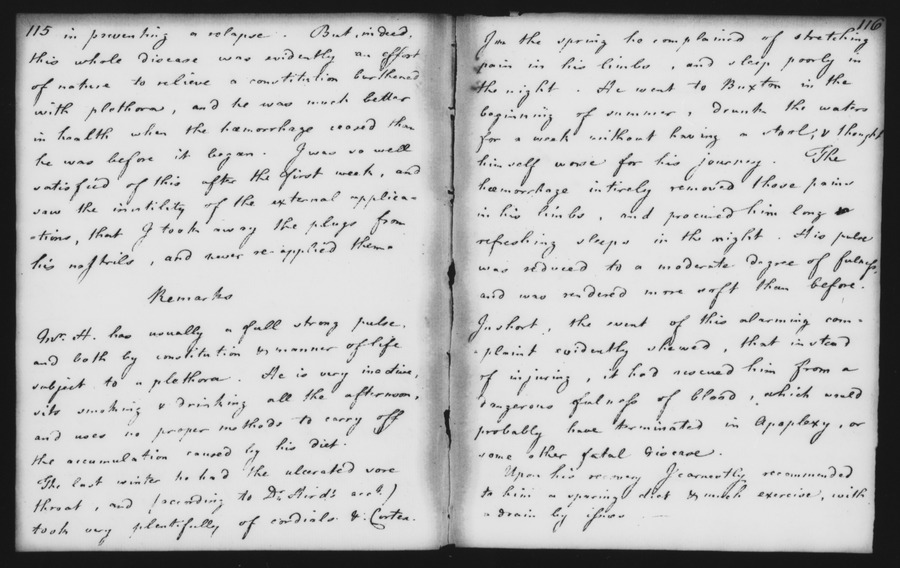 115
in preventing a relapse. But, indeed,
this whole disease was evidently an effort
of nature to relieve a constitution burthened
with plethora, and he was much better
in health when the hæmorrhage ceased than
he was before it began. I was so well
satisfied of this after the first week, and
saw the inutility of the external applica-
-tions, that I took away the plugs from
his nostrils, and never re-applied them.
Remarks
Mr. H. has usually a full strong pulse,
and both by constitution & manner of life
subject to a plethora. He is very inactive,
sits smoking & drinking all the afternoon,
and uses no proper methods to carry off
the accumulation caused by his diet.
The last winter he had the ulcerated sore
throat, and (according to Dr. Aird's acct.)
took very plentifully of cordials & Cortex.
116
In the spring he complained of stretching
pain in his limbs, and sleep poorly in
the night. He went to Buxton in the
beginning of summer, drunk the waters
for a week without having a stool, & thought
himself worse for his journey. The
hæmorrhage intirely removed those pains
in his limbs, and procured him long &
refreshing sleeps in the night. His pulse
was reduced to a moderate degree of fulness,
and was rendered more soft than before.
In short, the event of this alarming com-
-plaint evidently shewed, that instead
of injuring, it had rescued him from a
dangerous fulness of blood, which would
probably have terminated in Apoplexy, or
some other fatal disease.
Upon his recovery I earnestly recommended
to him a sparing diet & much exercise, with
a drain by issues